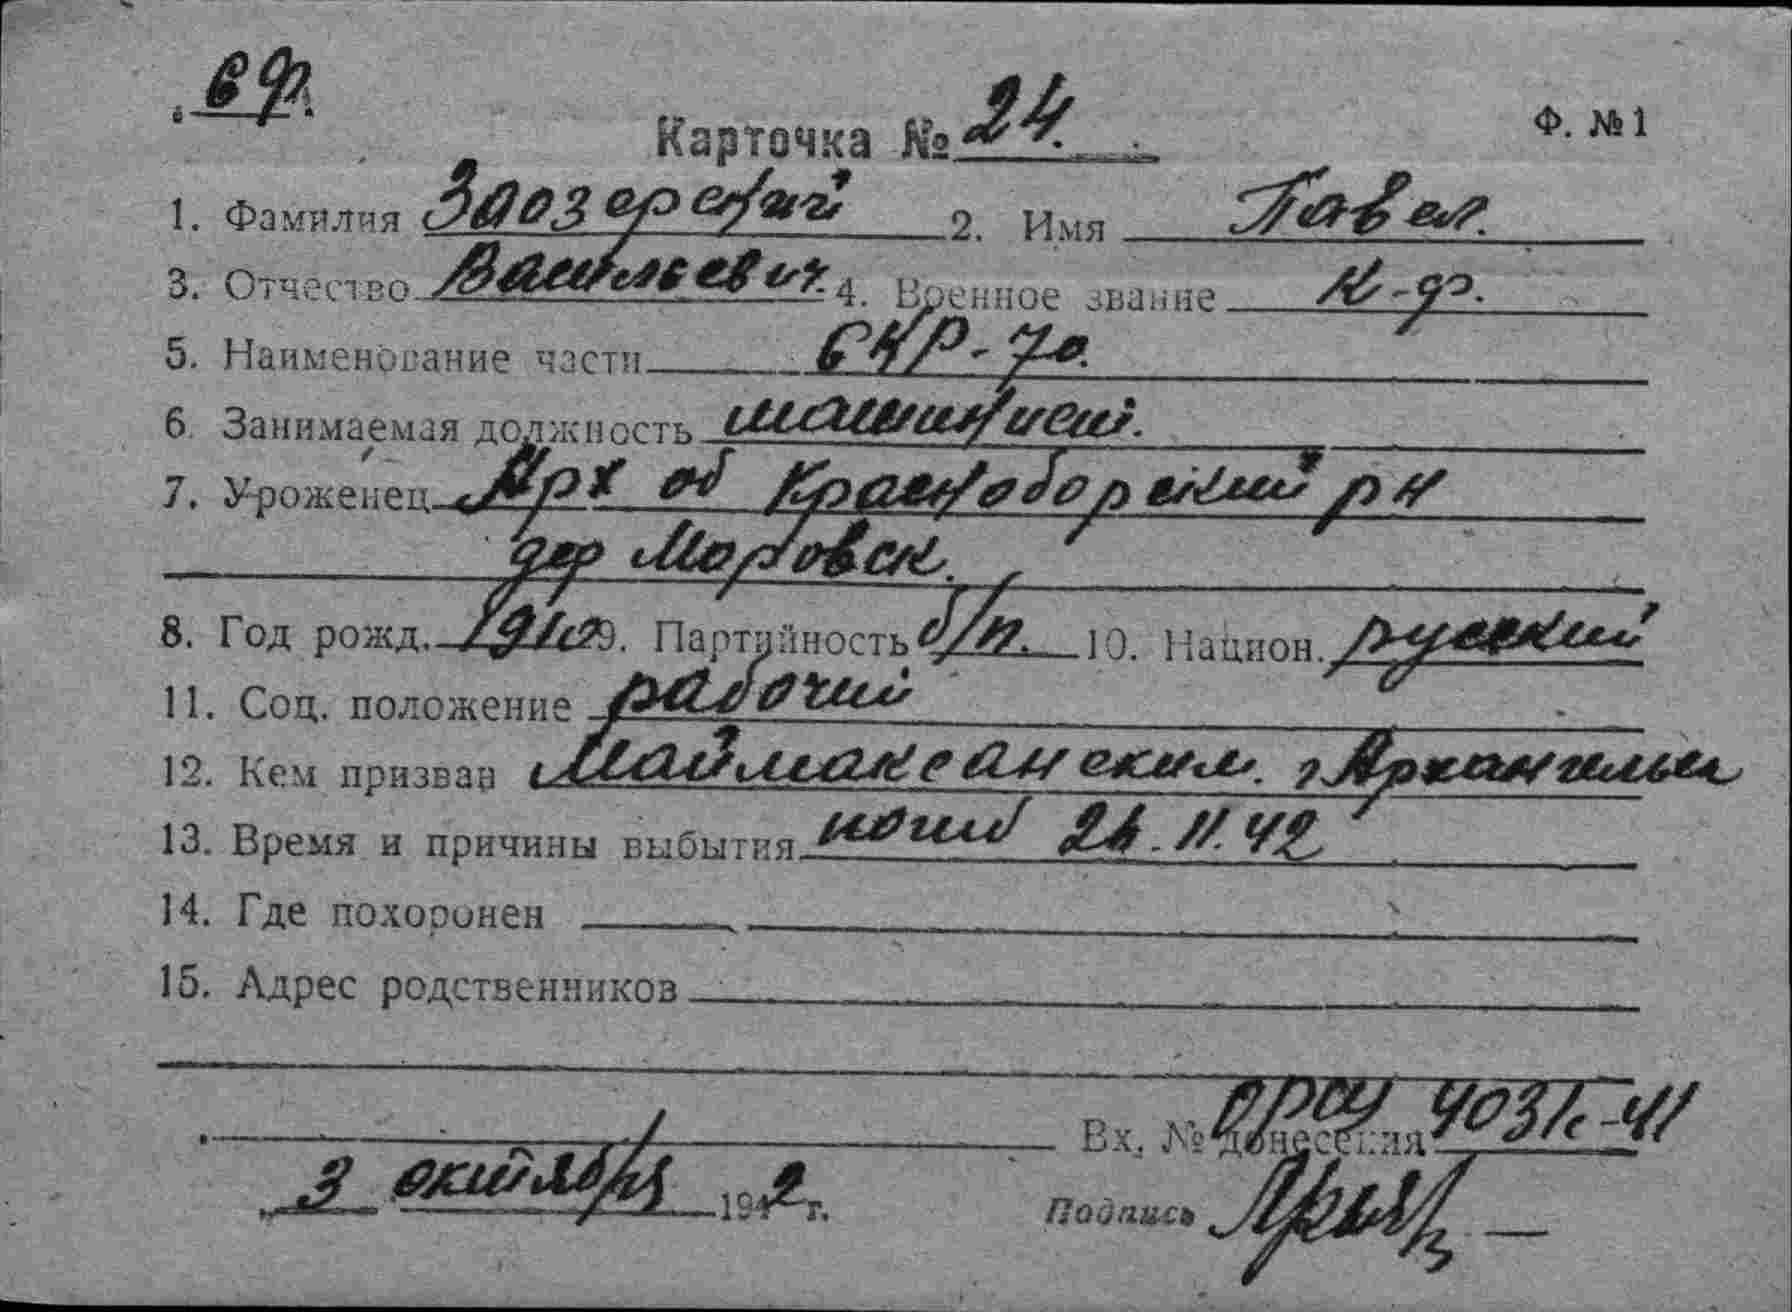 СФ.
Карточка № 24.
Ф. № 1
1. Фамилия Заозерский 2. Имя Павел.
3. Отчество Васильевич. 4. Военное звание к-ф.
5. Наименование части СКР-70.
6. Занимаемая должность машинист.
7. Уроженец Арх об Красноборский рн
дер Моровск.
8. Год рожд. 1910 9. Партийность б/п. 10. Национ. русский
11. Соц. положение рабочий
12. Кем призван Маймаксанским. г Архангельск
13. Время и причины выбытия погиб 24.11.42
14. Где похоронен
15. Адрес родственников
Вх. № донесения 4031с-41
„ 3 октября 1942 г. Подпись